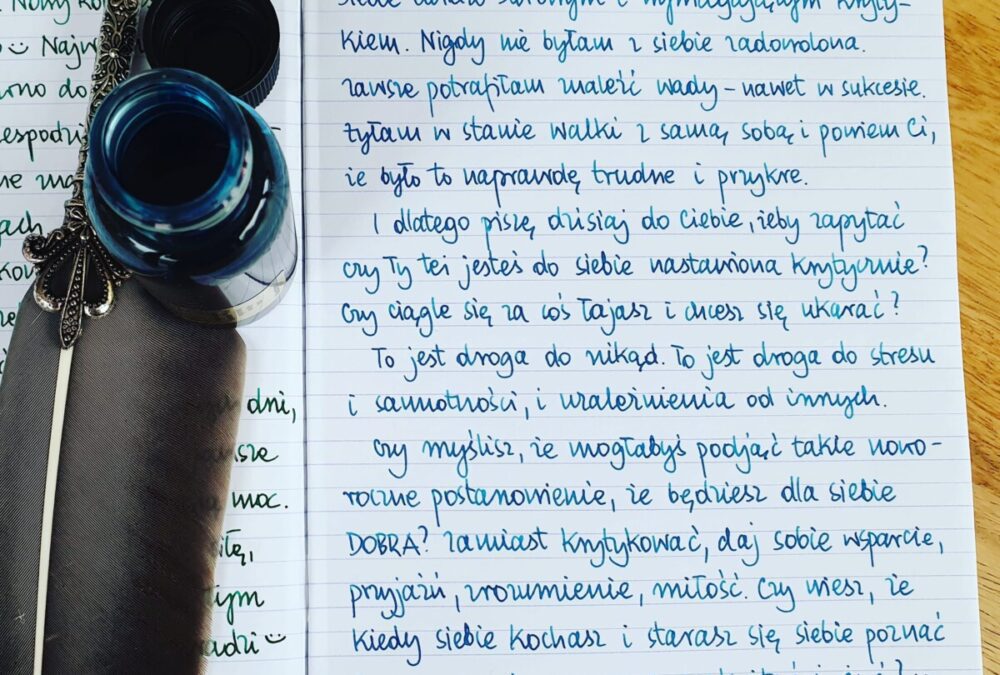 Nowy
Najw
rno do
espodzi
ne ma
ach
kow
dni,
sze
moc.
iłę,
tym
adzi ☺
siebie bardzo surowym i wymagającym kryty-
kiem. Nigdy nie byłam z siebie zadowolona.
Zawsze potrafiłam znaleźć wady – nawet w sukcesie.
Żyłam w stanie walki z samą sobą i powiem Ci,
że było to naprawdę trudne i przykre.
I dlatego piszę dzisiaj do Ciebie, żeby zapytać
czy Ty też jesteś do siebie nastawiona krytycznie?
Czy ciągle się za coś łajasz i chcesz się ukarać?
To jest droga do nikąd. To jest droga do stresu
i samotności, i uzależnienia od innych.
Czy myślisz, że mogłabyś podjąć takie nowo-
roczne postanowienie, że będziesz dla siebie
DOBRA? Zamiast krytykować, daj sobie wsparcie,
przyjaźń, zrozumienie, miłość. Czy wiesz, że
kiedy siebie kochasz i starasz się siebie poznać